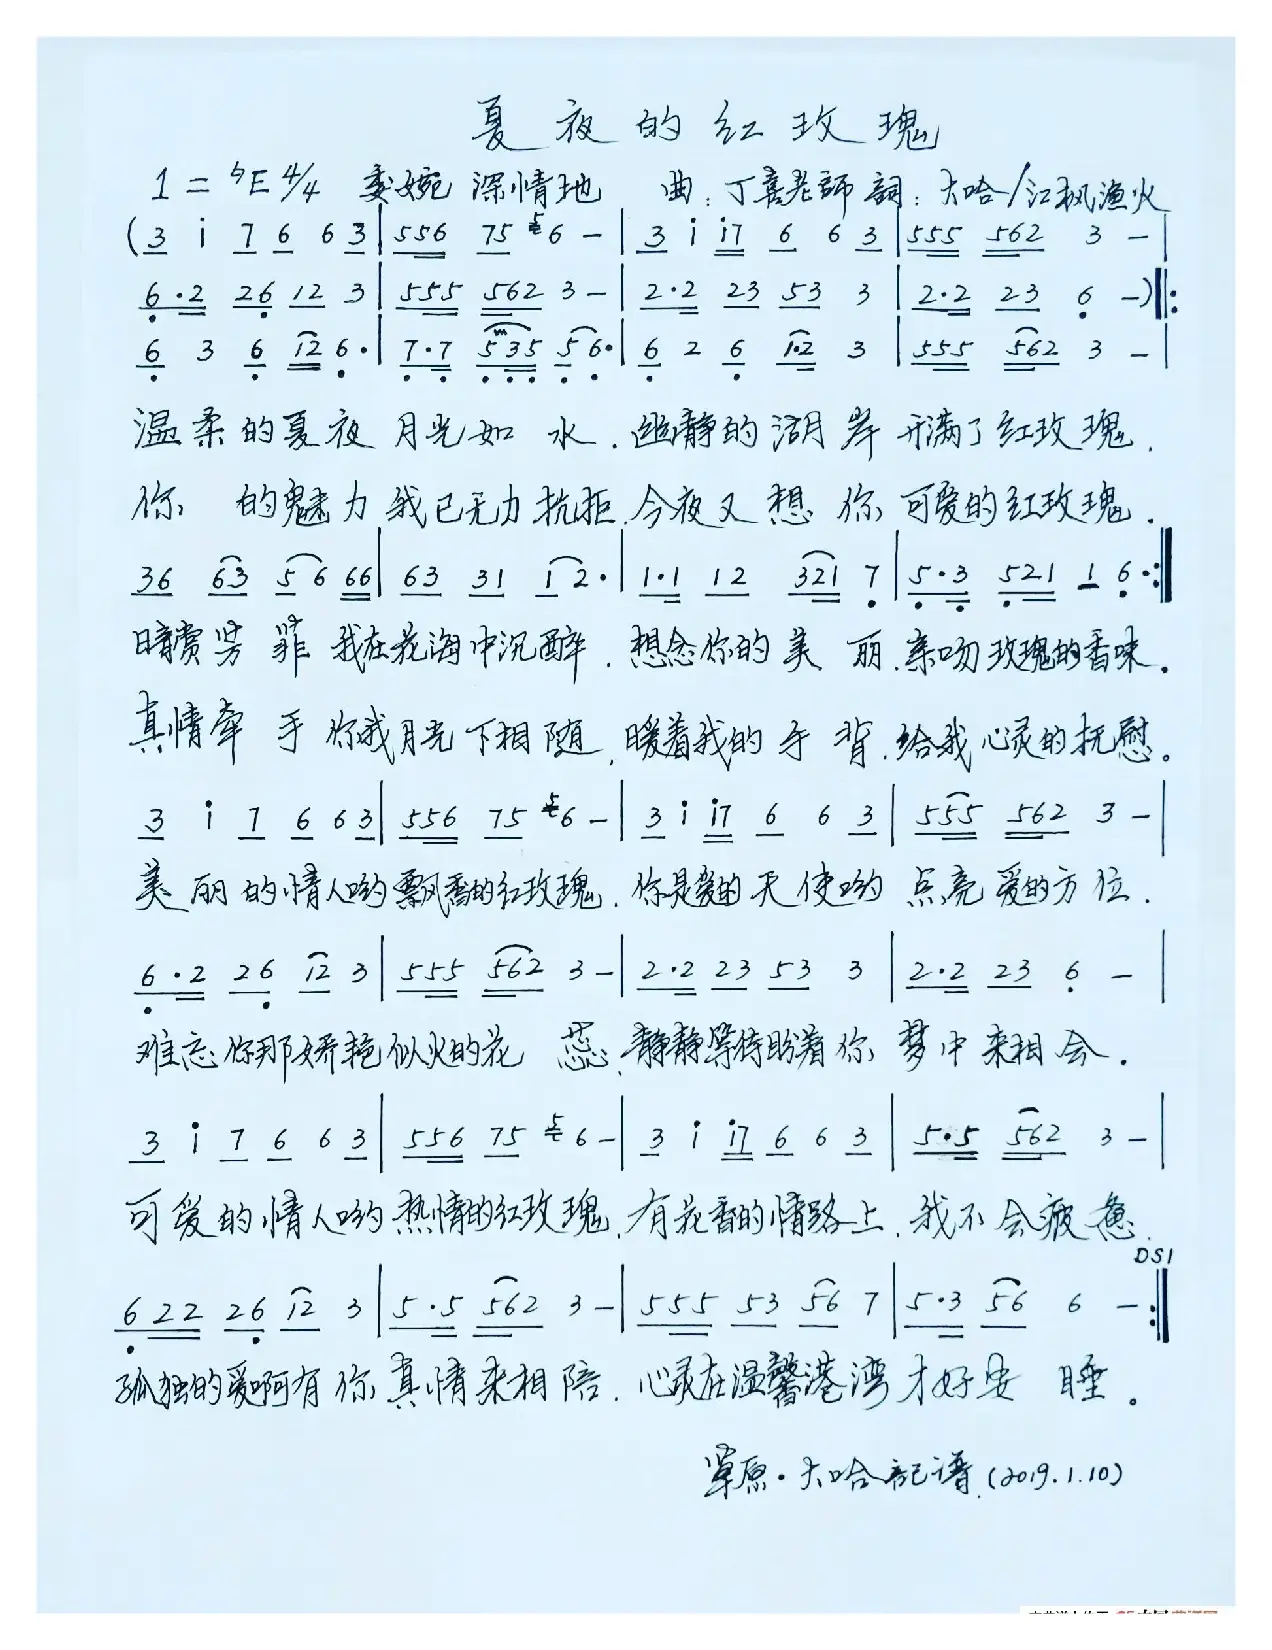 夏夜的红玫瑰
1=♭E 4/4 委婉 深情地 曲:丁喜老師 詞:大哈/江枫渔火
(3 i 7 6 6 3 | 556 75 56 - | 3 i i7 6 6 3 | 555 562 3 - |
6·2 26 12 3 | 555 562 3 - | 2·2 23 53 3 | 2·2 23 6 -)‖:
6 3 6 12 6· | 7·7 535 56· | 6 2 6 1·2 3 | 555 562 3 - |
温柔的夏夜 月光如水.幽静的湖岸 开满了红玫瑰.
你 的魅力 我已无力抗拒.今夜又想你 可爱的红玫瑰.
36 63 56 66 | 63 31 12· | 1·1 12 321 7 | 5·3 521 1 6·:‖
暗赏芳菲 我在花海中沉醉.想念你的美丽.亲吻玫瑰的香味.
真情牵手 你我月光下相随.暖着我的手背.给我心灵的抚慰。
3 i 7 6 6 3 | 556 75 56 - | 3 i i7 6 6 3 | 555 562 3 - |
美丽的情人哟 飘香的红玫瑰.你是爱的天使哟 点亮爱的方位.
6·2 26 12 3 | 555 562 3 - | 2·2 23 53 3 | 2·2 23 6 - |
难忘你那娇艳似火的花蕊.静静等待盼着你 梦中来相会.
3 i 7 6 6 3 | 556 75 56 - | 3 i i7 6 6 3 | 5·5 562 3 - |
可爱的情人哟 热情的红玫瑰.有花香的情路上.我不会疲惫.
DS1
622 26 12 3 | 5·5 562 3 - | 555 53 56 7 | 5·3 56 6 -:‖
孤独的爱啊有你 真情来相陪.心灵在温馨港湾才好安睡。
草原·大哈記谱.(2019.1.10)